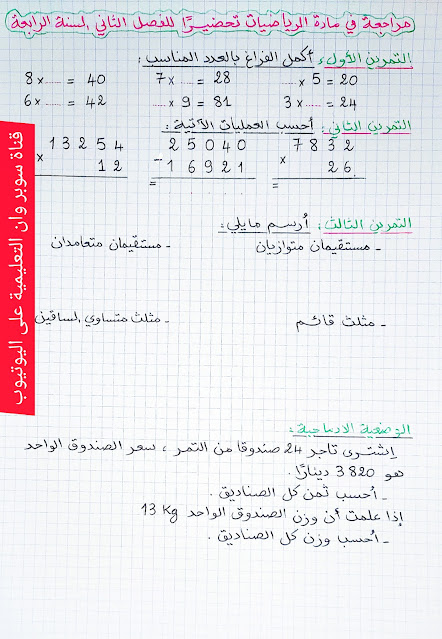 مراجعة في مادة الرياضيات تحضيرًا للفصل الثاني لسنة الرابعة
التمرين الأول: أكمل الفراغ بالعدد المناسب:
8 × ..... = 40
7 × ..... = 28
..... × 5 = 20
6 × ..... = 42
..... × 9 = 81
3 × ..... = 24
التمرين الثاني: أحسب العمليات الآتية:
13254
×
12
25040
-
16921
=
7832
×
26.
=
التمرين الثالث: أرسم مايلي:
- مستقيمان متوازيان
- مستقيمان متعامدان
- مثلث قائم
- مثلث متساوي لساقين
الوضعية الادماجية:
إشترى تاجر 24 صندوقا من التمر، سعر الصندوق الواحد
هو 3820 دينارًا.
- أحسب ثمن كل الصناديق.
إذا علمت أن وزن الصندوق الواحد 13 Kg
- أحسب وزن كل الصناديق.
قناة سوبر وان التعليمية على اليوتيوب